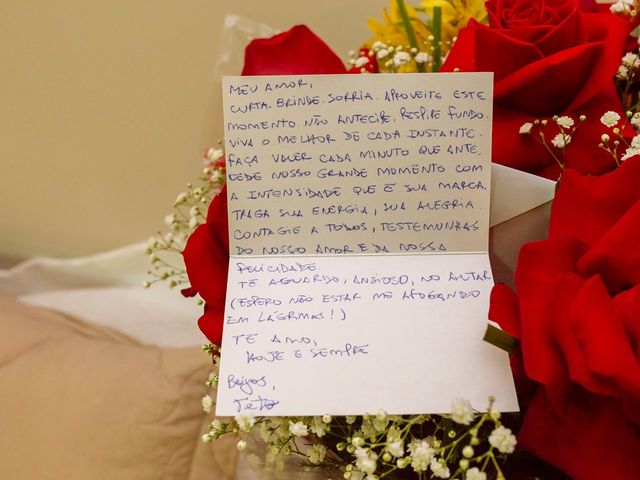 MEU AMOR,
CURTA. BRINDE. SORRIA. APROVEITE ESTE
MOMENTO. NÃO ANTECIPE. RESPIRE FUNDO.
VIVA O MELHOR DE CADA INSTANTE.
FAÇA VALER CADA MINUTO QUE ANTE
CEDE NOSSO GRANDE MOMENTO COM
A INTENSIDADE QUE É SUA MARCA.
TRAGA SUA ENERGIA, SUA ALEGRIA.
CONTAGIE A TODOS, TESTEMUNHAS
DO NOSSO AMOR E DA NOSSA
FELICIDADE.
TE AGUARDO, ANSIOSO, NO ALTAR
(ESPERO NÃO ESTAR ME AFOGANDO
EM LÁGRIMAS!)
TE AMO,
HOJE E SEMPRE
Beijos,
Teto